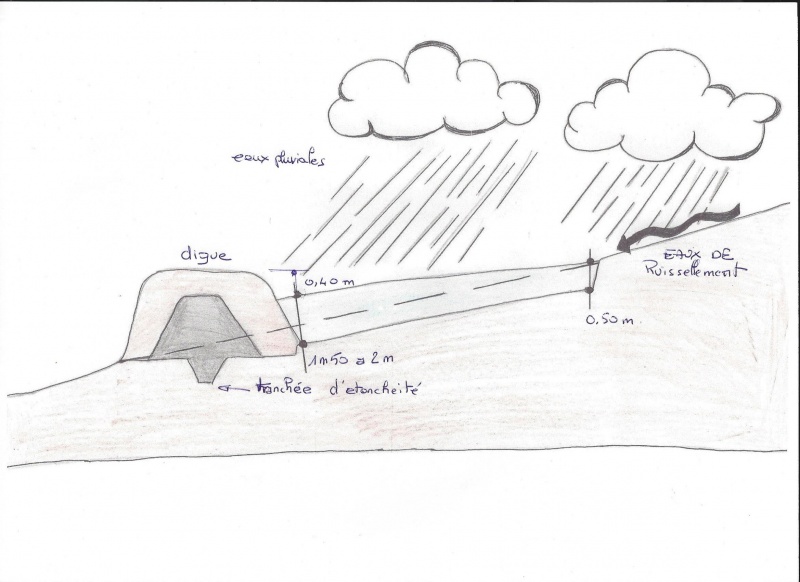 eaux pluviales
digue
EAUX DE
Ruissellement
0,40 m
0.50 m.
1m50 a 2m
tranchée d'etancheité